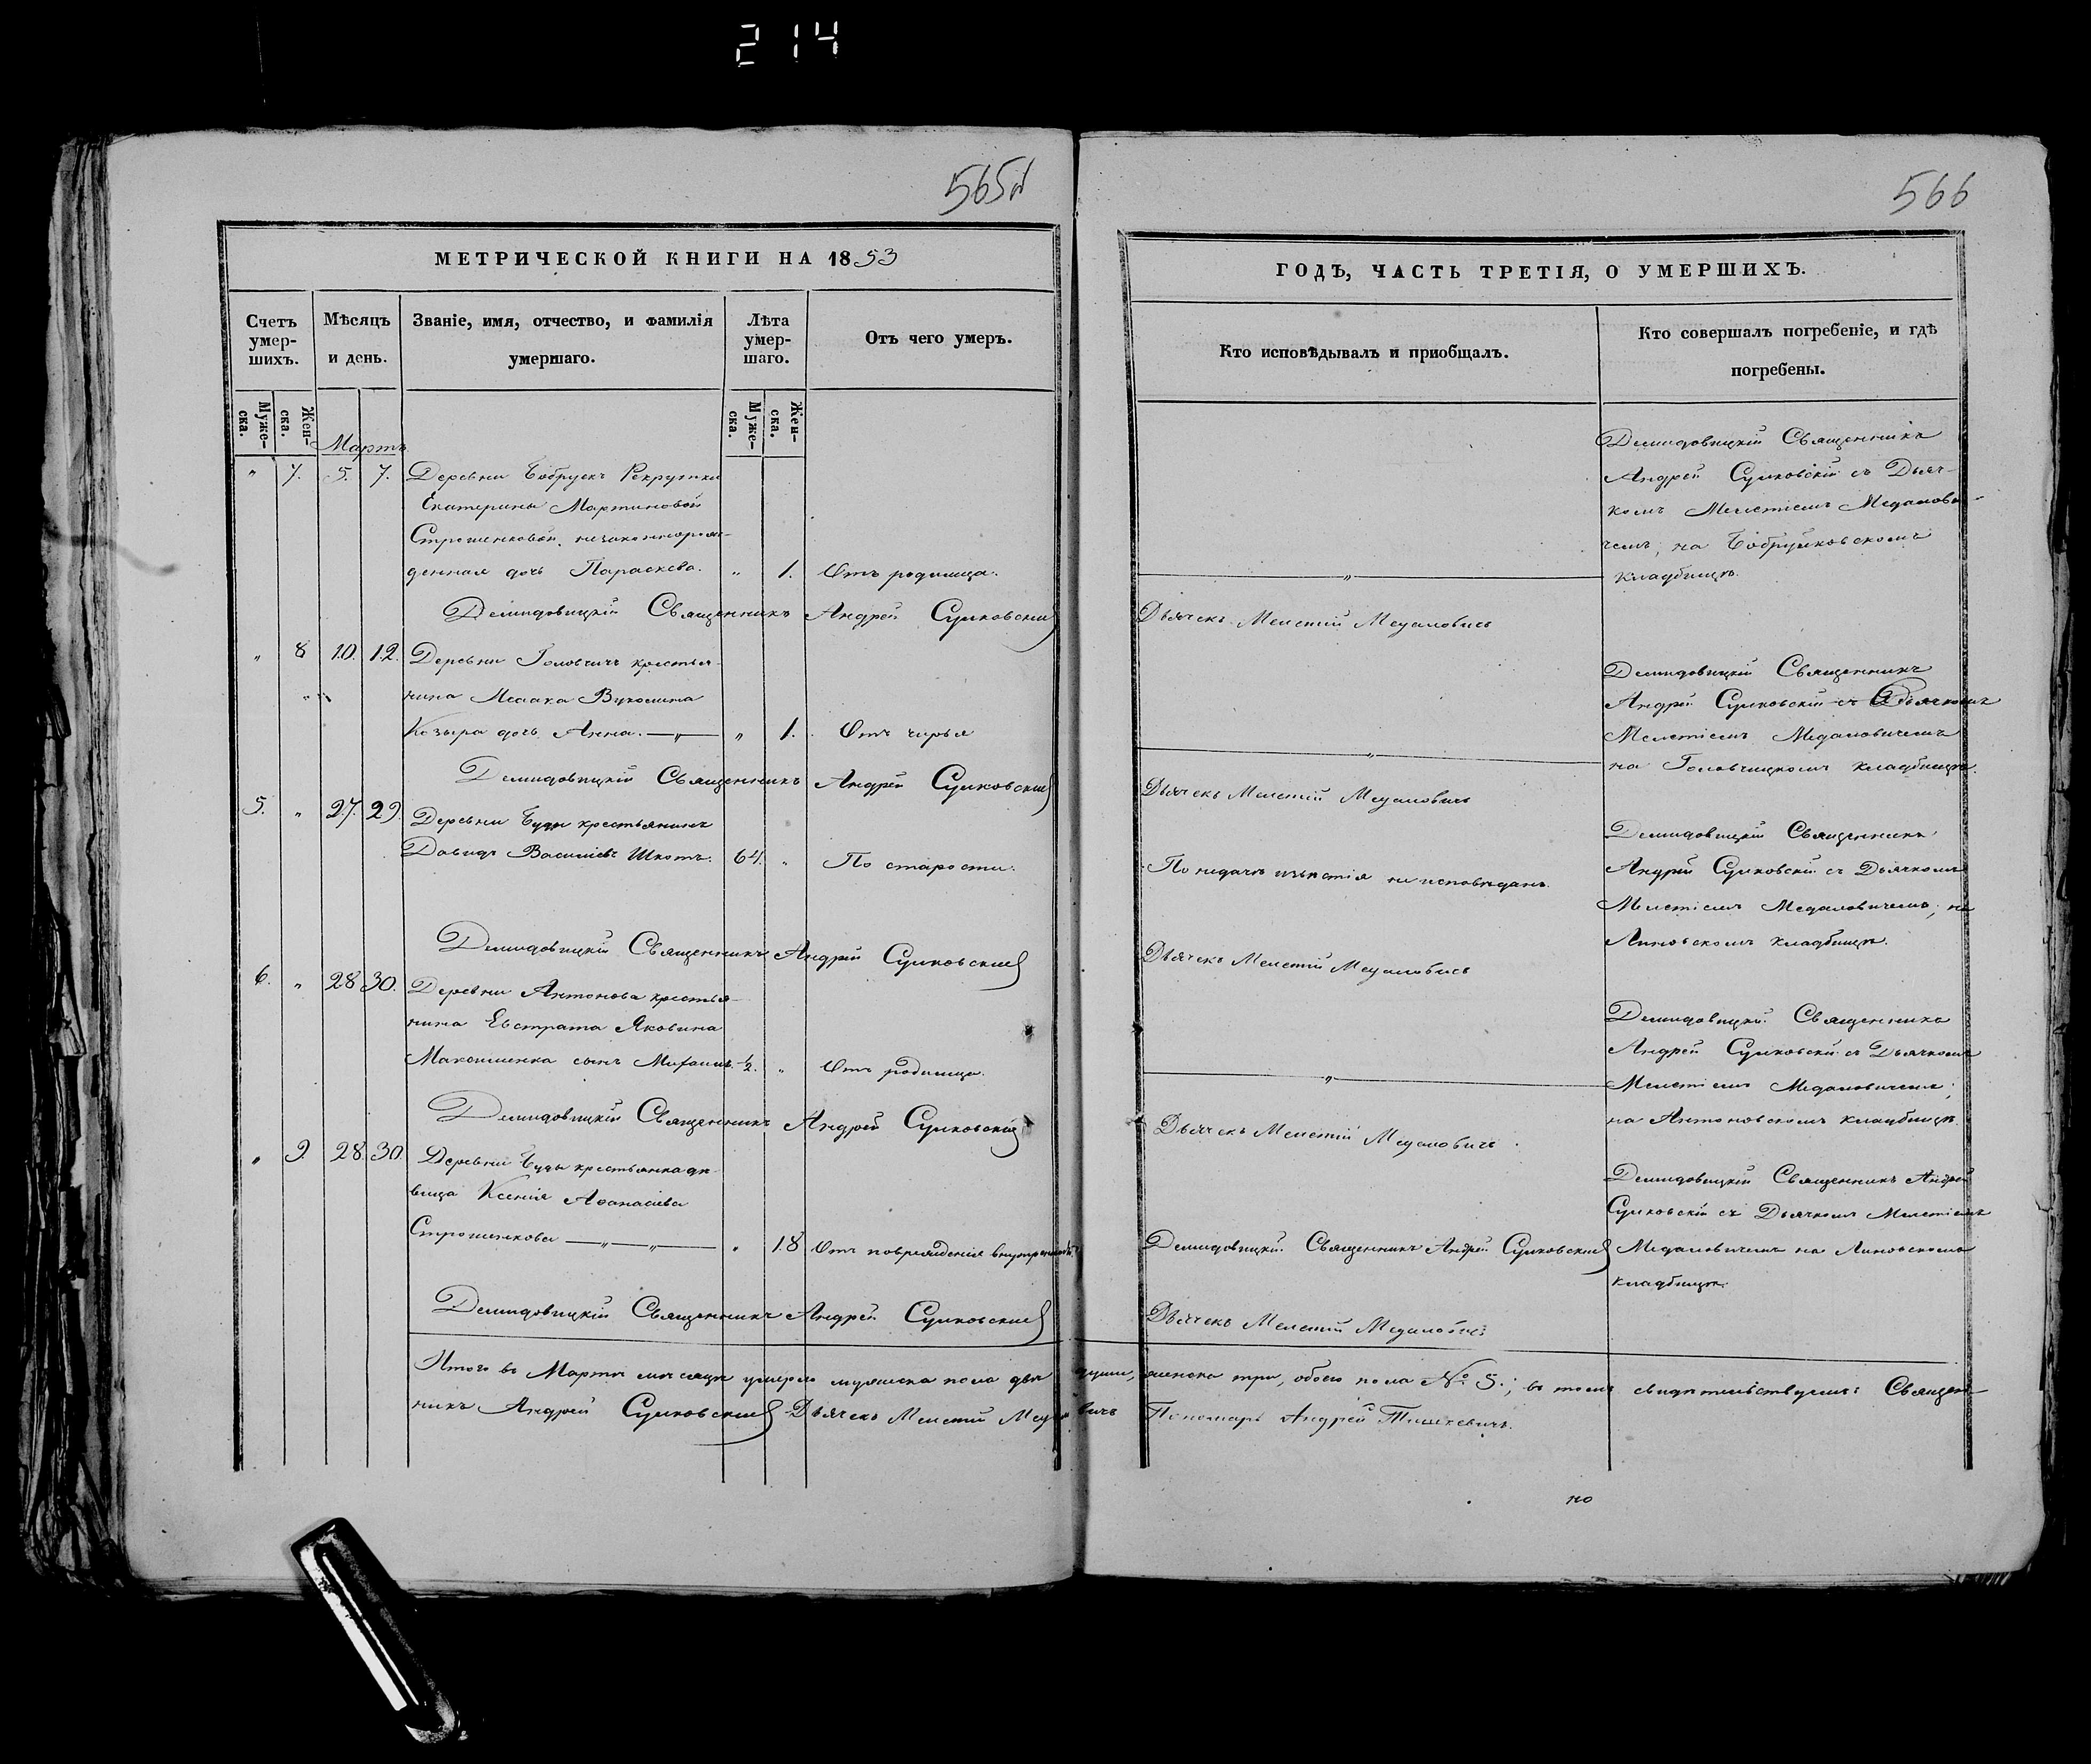 214
565
566
МЕТРИЧЕСКОЙ КНИГИ НА 1853
ГОДЪ, ЧАСТЬ ТРЕТІЯ, О УМЕРШИХЪ.
Счетъ умер-
шихъ.
Муже-
ска.
Жен-
ска.
Мѣсяцъ
и день.
Званіе, имя, отчество, и фамилія
умершаго.
Лѣта
умер-
шаго.
Муже-
ска.
Жен-
ска.
Отъ чего умеръ.
Кто исповѣдывалъ и пріобщалъ.
Кто совершалъ погребеніе, и гдѣ
погребены.
Мартъ
" 7. 5. 7. Деревни Бобруекъ Рекрутки
Екатерины Мартиновой
Строшенковой, незаконнорож-
денная дочь Параскева. " 1. Отъ родимца.
Демидовицкій Священникъ
Андрей Сулковскій съ Дьяч-
комъ Мелетіемъ Медалови-
чемъ, на
кладбищѣ.
Демидовицкій Священникъ Андрей Сулковскій
Дьячекъ Мелетій Медаловичь
" 8 10. 12. Деревни Головчичъ крестья-
нина Исаака
Козыра дочь Анна. " 1. Отъ чирья
Демидовицкій Священникъ
Андрей Сулковскій съ Дьячкомъ
Мелетіемъ Медаловичемъ
на Головчицкомъ кладбищѣ.
Демидовицкій Священникъ Андрей Сулковскій
Дьячекъ Мелетій Медаловичь
5. " 27. 29. Деревни Буды крестьянинъ
Давидъ Василіевъ Шкотъ. 64. " По старости.
По недачѣ извѣстія не исповѣданъ.
Демидовицкій Священникъ
Андрей Сулковскій съ Дьячкомъ
Мелетіемъ Медаловичемъ, на
Линовскомъ кладбищѣ.
Демидовицкій Священникъ Андрей Сулковскій
Дьячекъ Мелетій Медаловичь
6. " 28 30. Деревни Антонова крестья-
нина Евстрата Яковина
сынъ Михаилъ ½. " Отъ родимца.
Демидовицкій Священникъ
Андрей Сулковскій съ Дьячкомъ
Мелетіемъ Медаловичемъ,
на Антоновскомъ кладбищѣ.
Демидовицкій Священникъ Андрей Сулковскій
Дьячекъ Мелетій Медаловичь
" 9. 28. 30. Деревни Буды крестьянка дѣ-
вица Ксенія Афанасіева
Строшенкова " 18 Отъ поврежденія внутренности
Демидовицкій Священникъ Андрей Сулковскій
Демидовицкій Священникъ Андрей
Сулковскій съ Дьячкомъ Мелетіемъ
Медаловичемъ на Линовскомъ
кладбищѣ.
Демидовицкій Священникъ Андрей Сулковскій
Дьячекъ Мелетій Медаловичь
Итого въ Мартѣ мѣсяцѣ умерло мужеска пола двѣ души, женска три, обоего пола № 5.; въ томъ свидѣтельствуемъ: Священ-
никъ Андрей Сулковскій Дьячекъ Мелетій Медаловичь Пономарь Андрей Тишкевичъ.
по